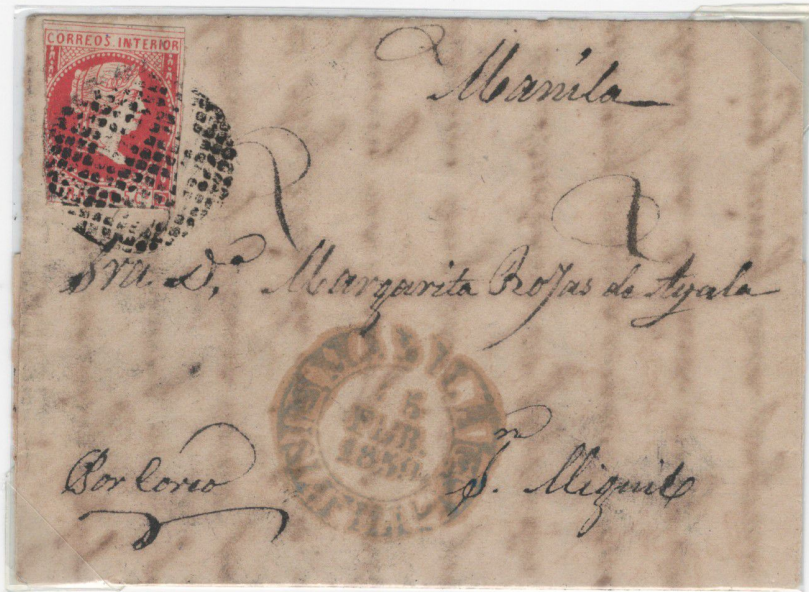 CORREOS INTERIOR
Manila
Sra. D.ª Margarita Rojas de Ayala
5
FEB.
1859
Por Coreo
S.n Miguel